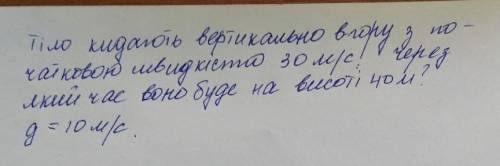 Тіло кидають вертикально вгору з по-
чатковою швидкістю 30 м/с. Через
який час воно буде на висоті 40 м?
g = 10 м/с.